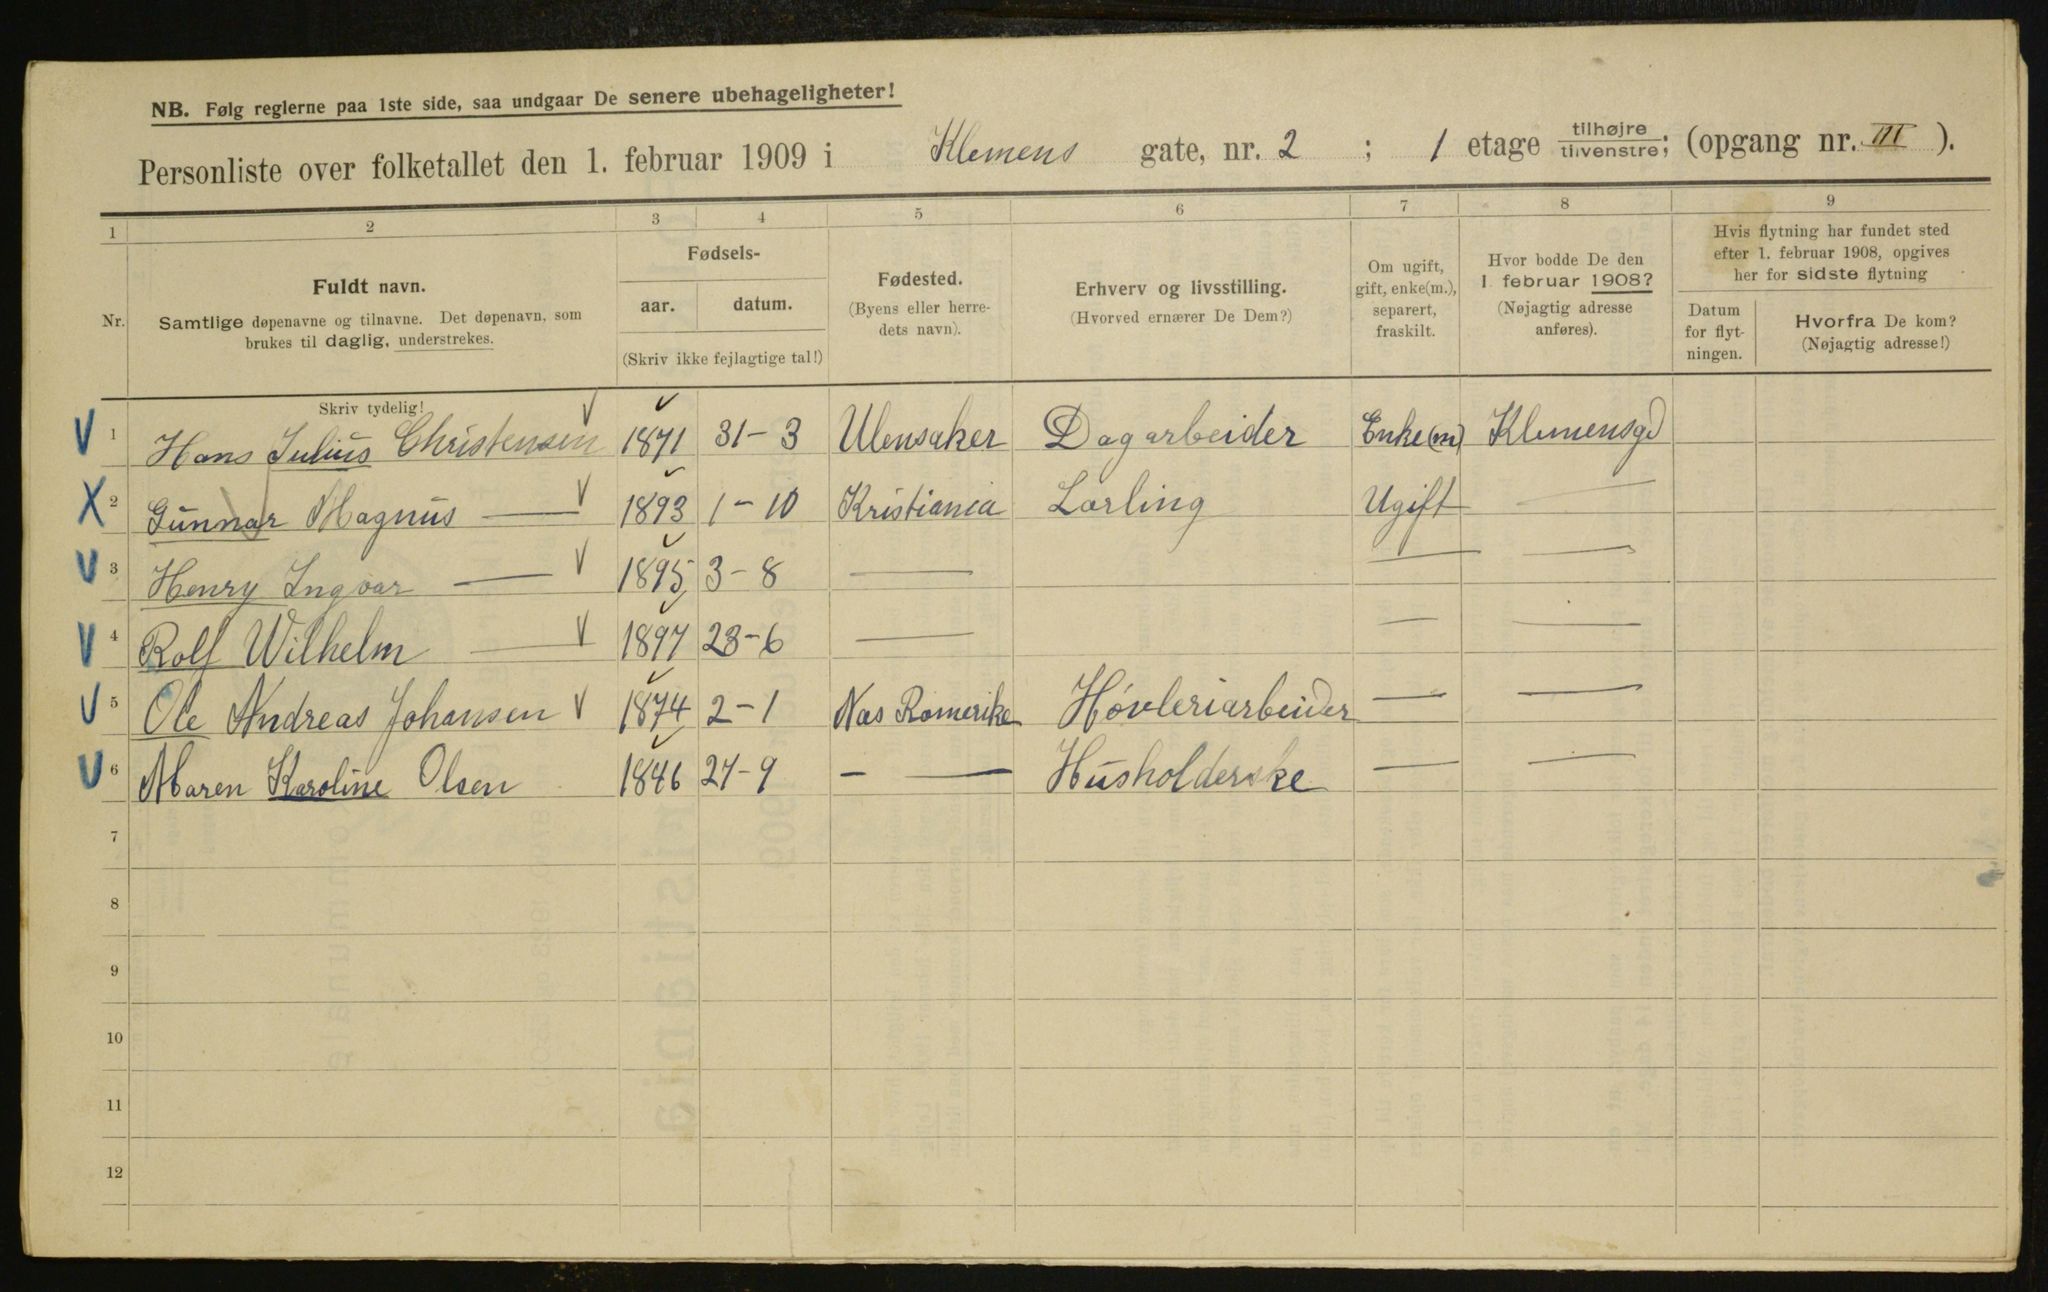 NB. Følg reglerne paa 1ste side, saa undgaar De senere ubehageligheter!
Personliste over folketallet den 1. februar 1909 i Klemens gate, nr. 2 ; 1 etage tilhøjre tilvenstre; (opgang nr. III ).
1 2 3 4 5 6 7 8 9
Nr.
Fuldt navn.
Samtlige døpenavne og tilnavne. Det døpenavn, som
brukes til daglig, understrekes.
Fødsels-
aar. datum.
(Skriv ikke fejlagtige tal!)
Fødested.
(Byens eller herre-
dets navn).
Erhverv og livsstilling.
(Hvorved ernærer De Dem?)
Om ugift,
gift, enke(m.),
separert,
fraskilt.
Hvor bodde De den
1. februar 1908?
(Nøjagtig adresse
anføres).
Hvis flytning har fundet sted
efter 1. februar 1908, opgives
her for sidste flytning
Datum
for flyt-
ningen.
Hvorfra De kom?
(Nøjagtig adresse!)
Skriv tydelig!
V 1 Hans Julius Christensen V 1871 31-3 Ulensaker Dagarbeider Enke(m) Klemensgd
X 2 Gunnar Magnus — V 1893 1-10 Kristiania Lærling Ugift —
V 3 Henry Ingvar — V 1895 3-8 — — —
V 4 Rolf Wilhelm — V 1897 23-6 — — —
V 5 Ole Andreas Johansen V 1874 2-1 Nas Romerike Høvleriarbeider — —
V 6 Maren Karoline Olsen 1846 24-9 - — Husholderske — —
7
8
9
10
11
12